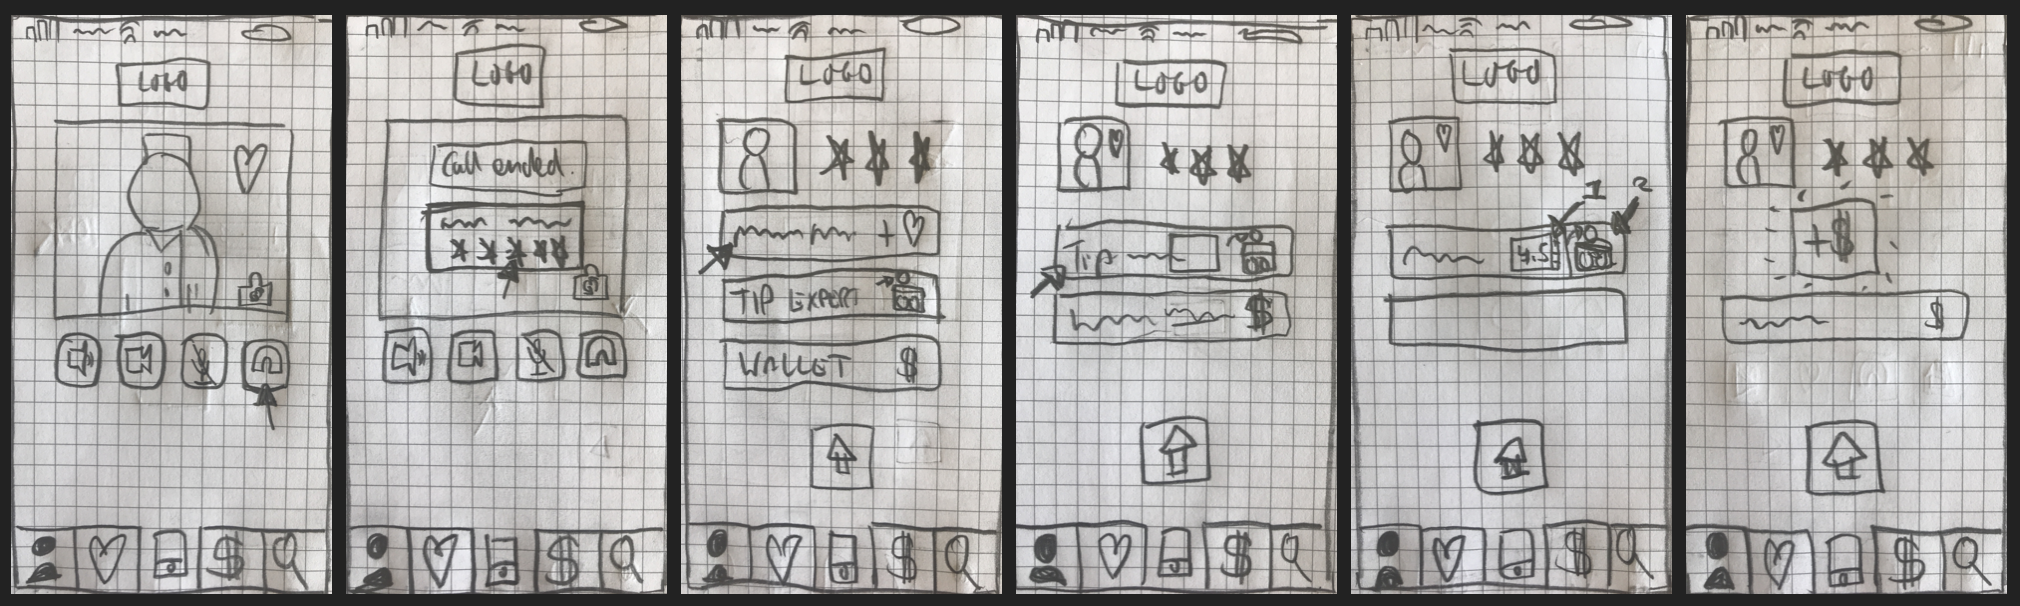 LOGO
LOGO
Call ended.
LOGO
+
TIP EXPERT
WALLET $
LOGO
Tip
$
LOGO
1 2
4.5
LOGO
+$
$
$
$
$
$
$
$